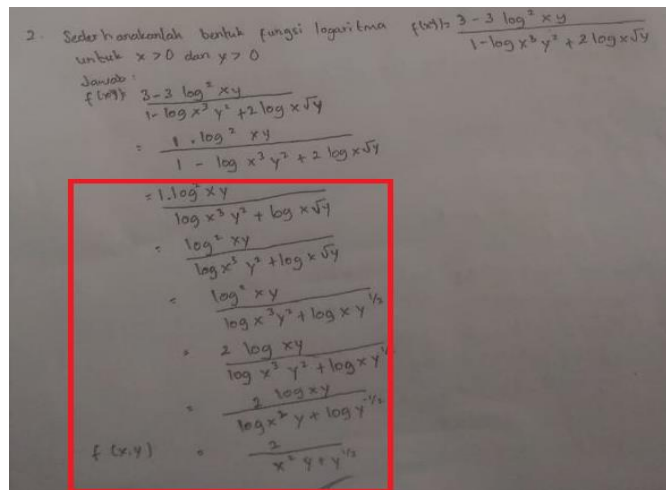 2. Sederhanakanlah bentuk fungsi logaritma f(x,y) = 3 - 3 log² xy / 1 - log x³ y² + 2 log x√y
untuk x > 0 dan y > 0
Jawab :
f(x,y) = 3 - 3 log² xy / 1 - log x³ y² + 2 log x√y
= 1 . log² xy / 1 - log x³ y² + 2 log x√y
= 1. log² xy / log x³ y² + log x√y
= log² xy / log x³ y² + log x√y
= log² xy / log x³ y² + log x y^1/2
= 2 log xy / log x³ y² + log x y
= 2 log xy / log x² y + log y^1/2
f (x,y) = 2 / x² y + y^1/2